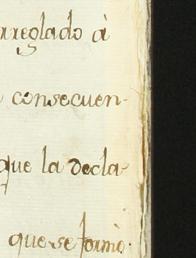 arreglado à
consecuen-
que la decla-
que se formò.